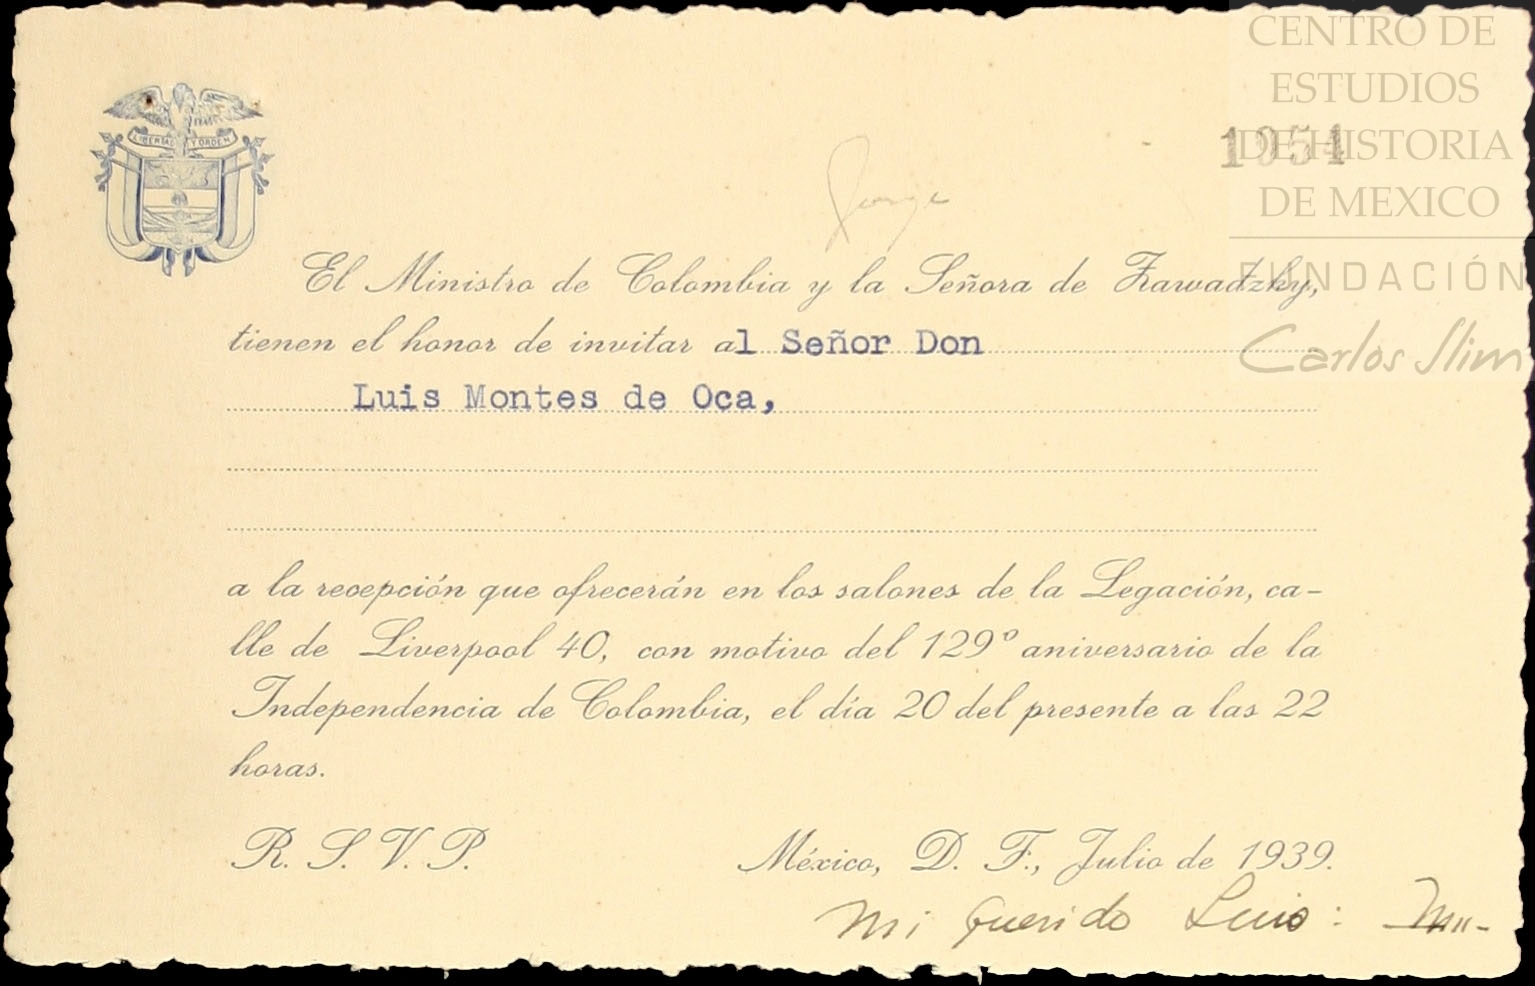 CENTRO DE
ESTUDIOS
DE HISTORIA
DE MEXICO
FUNDACIÓN
Carlos Slim
1954
LIBERTAD Y ORDEN
Jorge
El Ministro de Colombia y la Señora de Zawadzky,
tienen el honor de invitar al Señor Don
Luis Montes de Oca,
a la recepción que ofrecerán en los salones de la Legación, ca-
lle de Liverpool 40, con motivo del 129º aniversario de la
Independencia de Colombia, el día 20 del presente a las 22
horas.
R. S. V. P.
México, D. F., Julio de 1939.
Mi querido Luis: